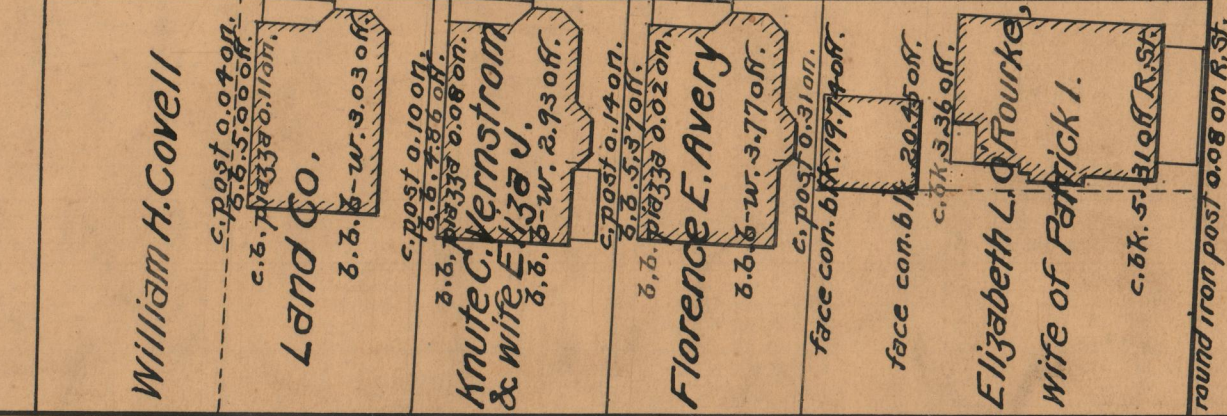 William H. Covell
c.post 0.04 on.
b.b. 5.00 off.
c.b. piazza 0.11 on.
Land Co.
b.b.-w. 3.03 off.
c.post 0.10 on.
b.b. 4.86 off.
b.b. piazza 0.08 on.
Knute C. Vernstrom
& wife Eliza J.
b.b.-w. 2.93 off.
c.post 0.14 on.
b.b. 5.37 off.
b.b. piazza 0.02 on.
Florence E. Avery
b.b.-w. 3.77 off.
c.post 0.31 on.
face con.blk. 19.74 off.
face con.blk. 20.45 off.
c.bk. 3.36 off.
Elizabeth L. O'Rourke,
wife of Patrick I.
c.bk. 5.31 off R.St.
round iron post 0.08 on R.St.